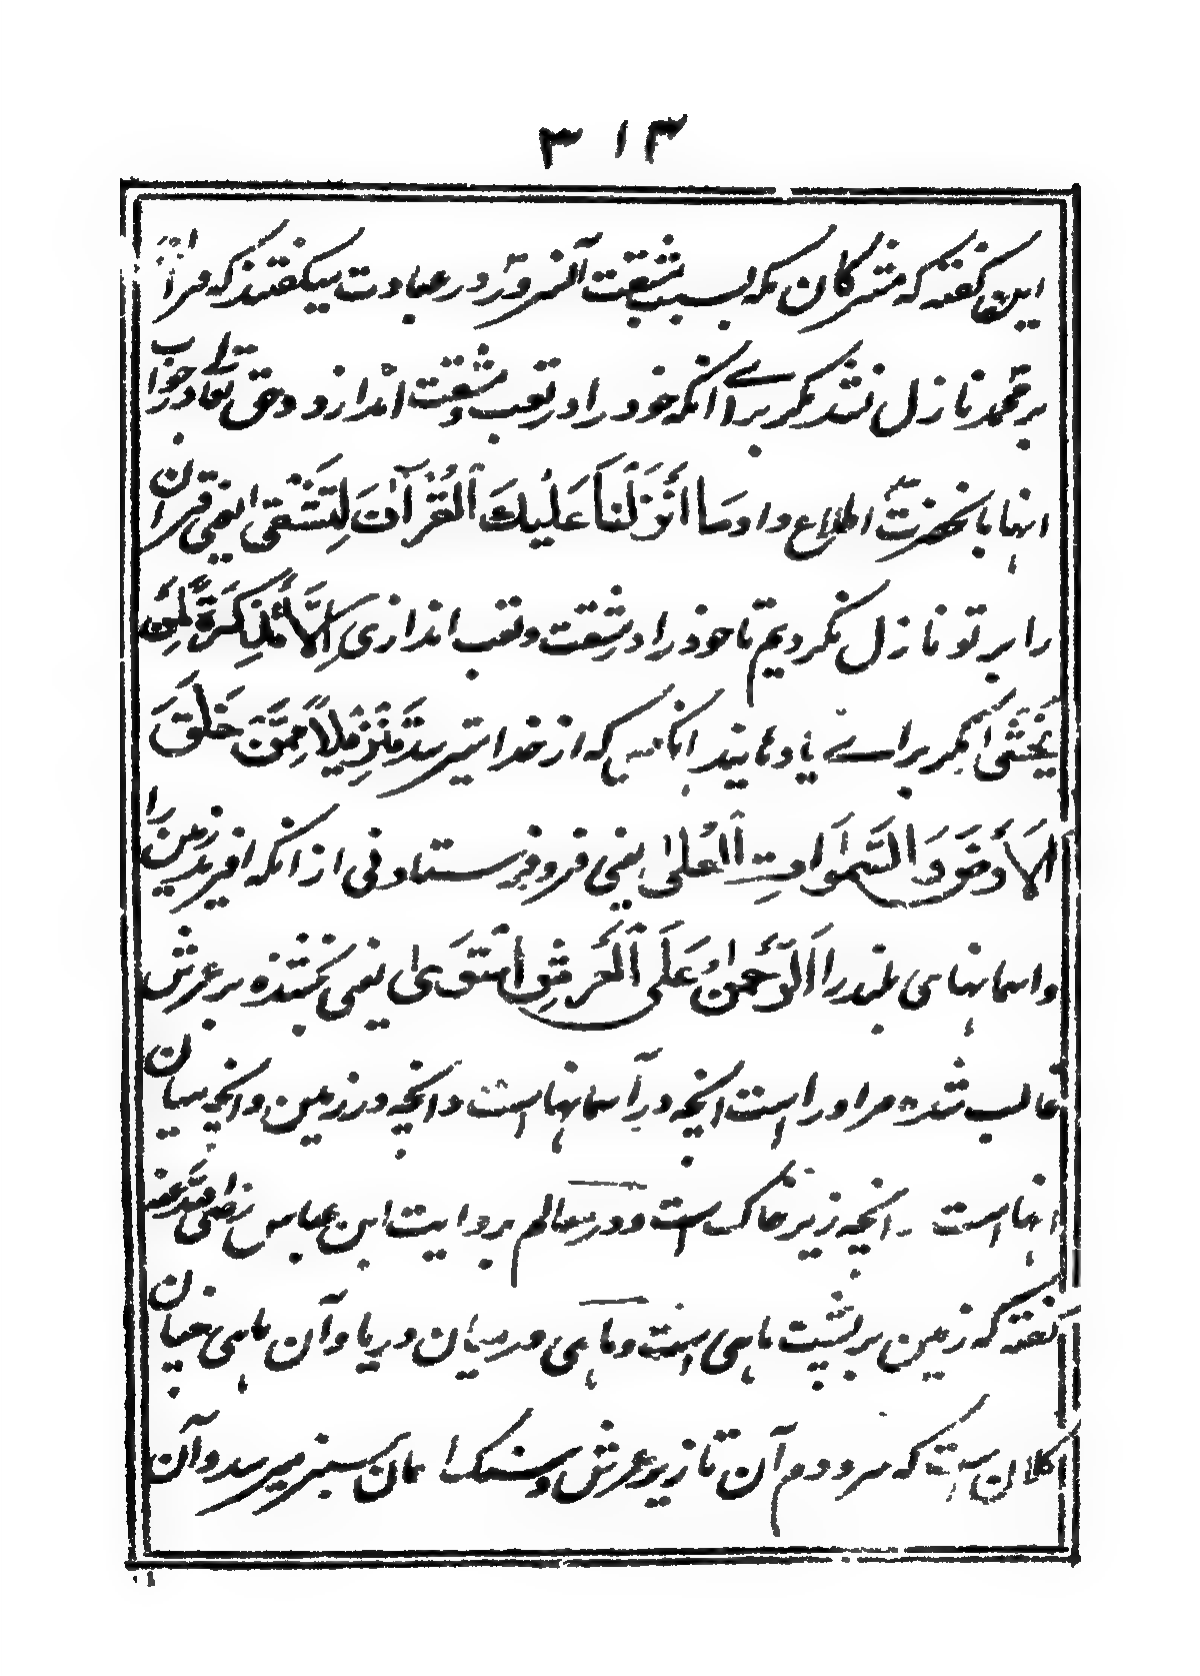 ۳۱۳
این گفته که مشرکان مکه بسبب مشقت آنسرور در عبادت میگفتند که قرآن
بر محمد نازل نشد مگر برای آنکه خود را در تعب و مشقت اندازد و حق تعالی در جواب
انها بانحضرت اطلاع داد و مَا أَنْزَلْنَا عَلَيْكَ الْقُرْآنَ لِتَشْقَى یعنی قرآن
را بر تو نازل نکردیم تا خود را در مشقت و تعب اندازی إِلَّا تَذْكِرَةً لِمَنْ
يَخْشَى مگر برای یاد دهانیدن انکس که از خدا میترسد تَنْزِيلًا مِمَّنْ خَلَقَ
الْأَرْضَ وَالسَّمٰوَاتِ الْعُلَى یعنی فرو فرستادنی از انکه افرید زمین را
و اسمانهای بلند را الرَّحْمٰنُ عَلَى الْعَرْشِ اسْتَوَى یعنی بخشنده بر عرش
غالب شده مر او راست انچه در آسمانهاست و انچه در زمین و انچه میان
انهاست و انچه زیر خاک است و در معالم بروایت ابن عباس رضی الله عنه
گفته که زمین بر پشت ماهی است و ماهی در میان دریا و آن ماهی چنان
کلان است که سر و دم آن تا زیر عرش و سنک اسمان سبز میرسد و آن